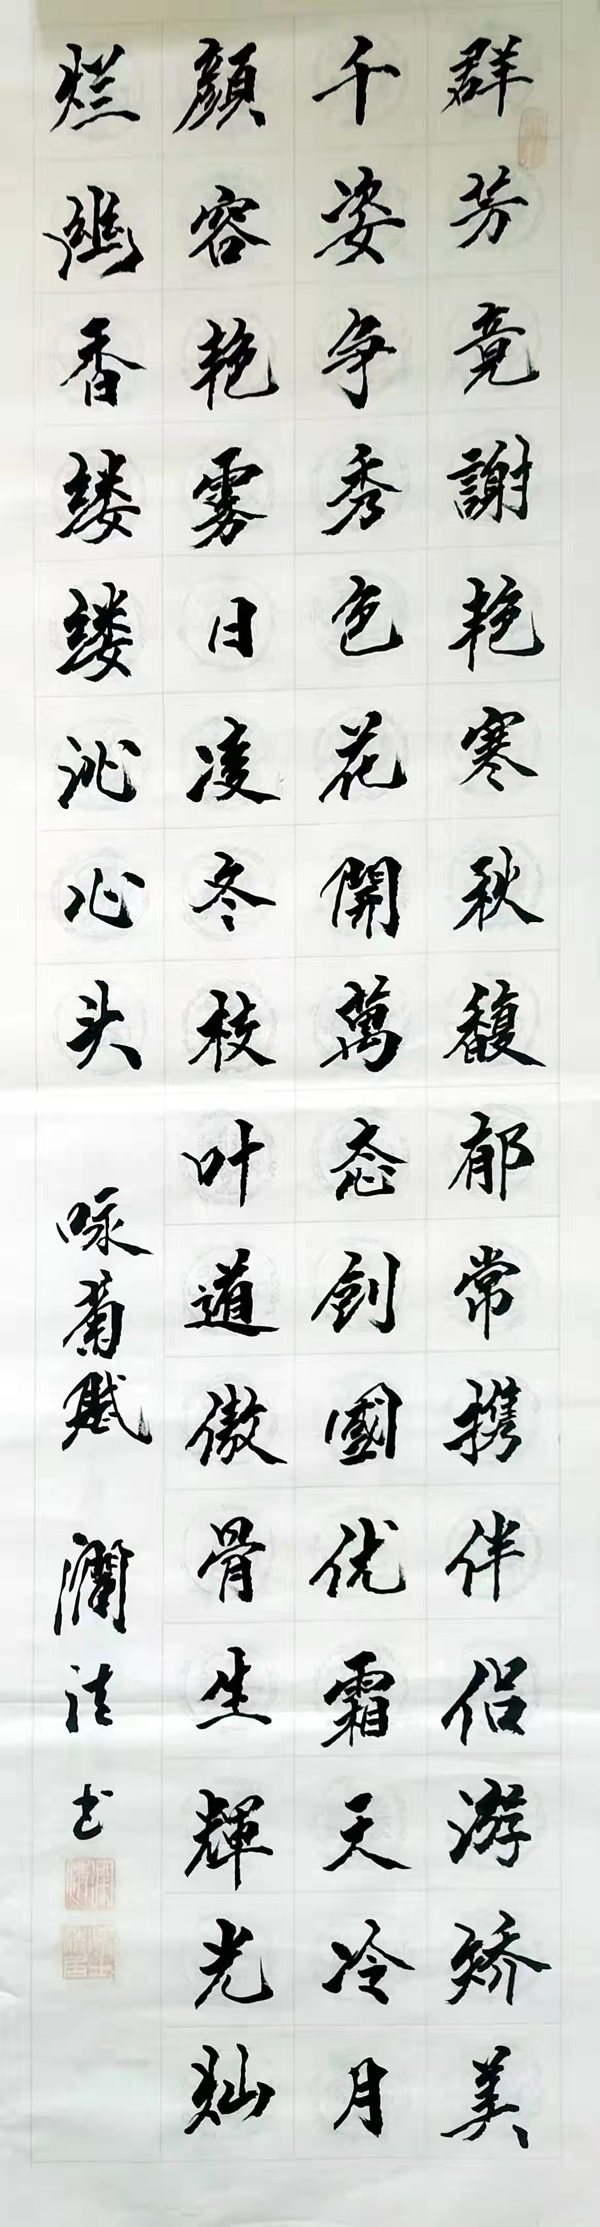 群芳竟謝艳寒秋馥郁常携伴侣游矫美
千姿争秀色花開萬态剑國优霜天冷月
顔容艳雾日凌冬枝叶道傲骨生輝光灿
烂幽香缕缕沁心头
咏菊赋 瀾清书